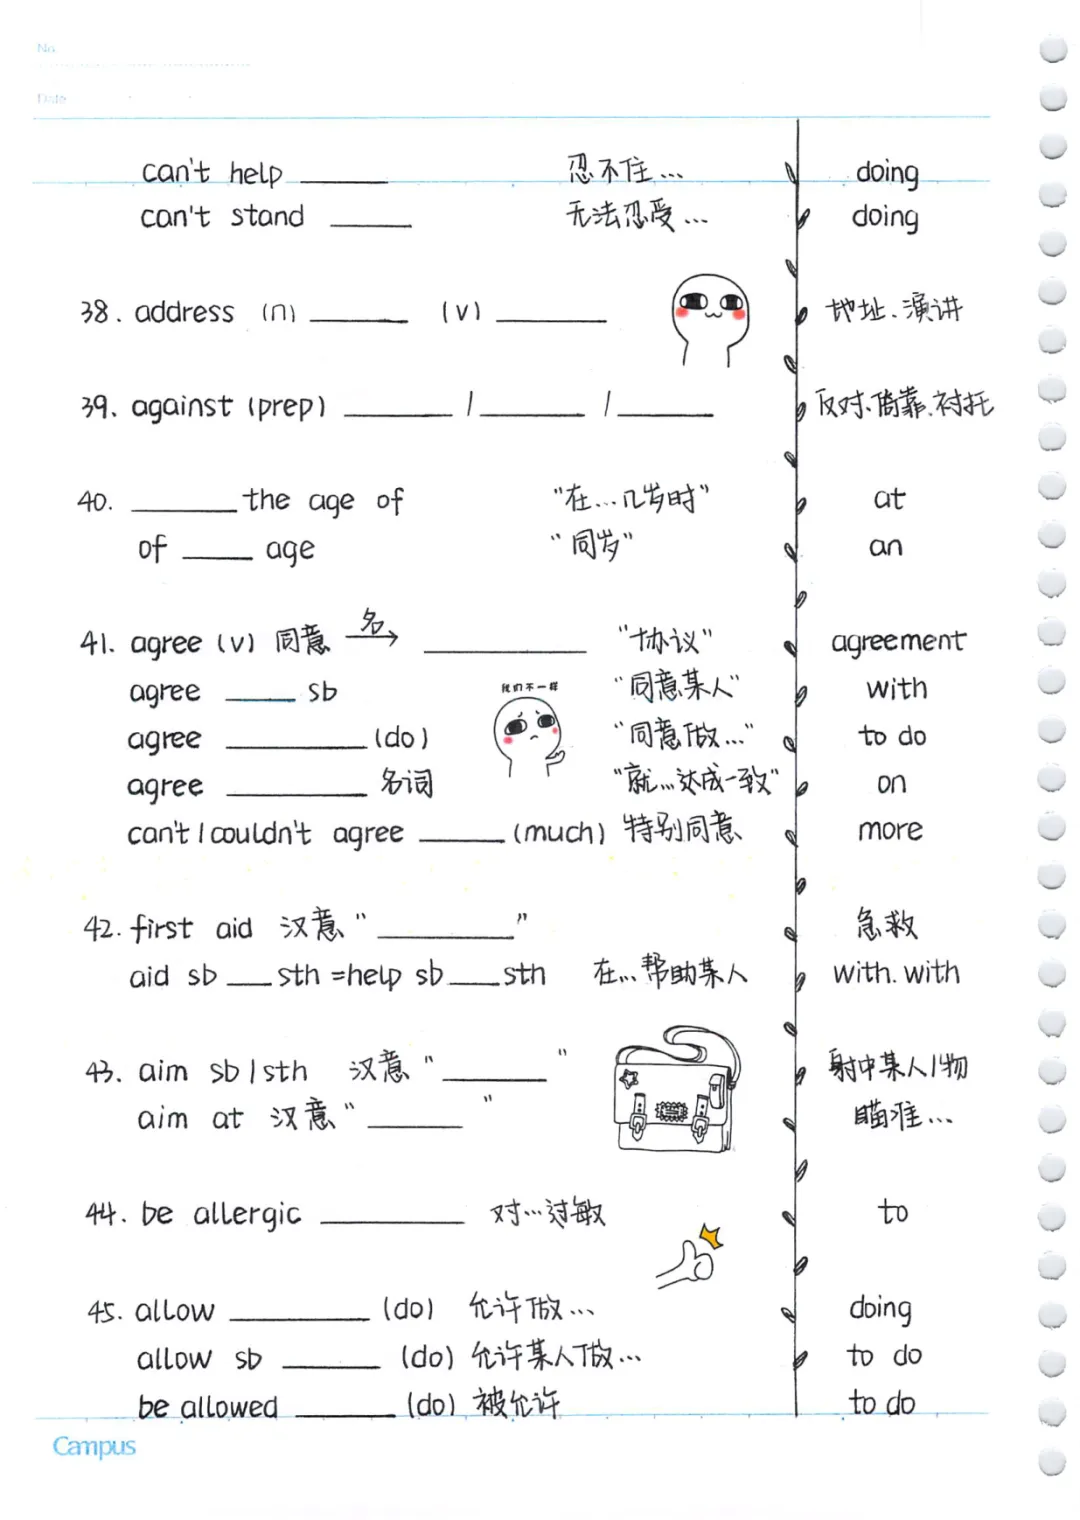 No.
Date
can't help ______ 忍不住... doing
can't stand ______ 无法忍受... doing
38. address (n) ______ (v) ______ 地址、演讲
39. against (prep) ______ / ______ / ______ 反对、倚靠、衬托
40. ______ the age of "在...几岁时" at
of ____ age "同岁" an
41. agree (v) 同意 名→ ______ "协议" agreement
agree ____ sb "同意某人" with
我们不一样
agree ______ (do) "同意做..." to do
agree ______ 名词 "就...达成一致" on
can't / couldn't agree ______ (much) 特别同意 more
42. first aid 汉意 "______" 急救
aid sb ___ sth = help sb ___ sth 在...帮助某人 with. with
43. aim sb / sth 汉意 "______" 射中某人/物
aim at 汉意 "______" 瞄准...
44. be allergic ______ 对...过敏 to
45. allow ______ (do) 允许做... doing
allow sb ______ (do) 允许某人做... to do
be allowed ______ (do) 被允许 to do
Campus